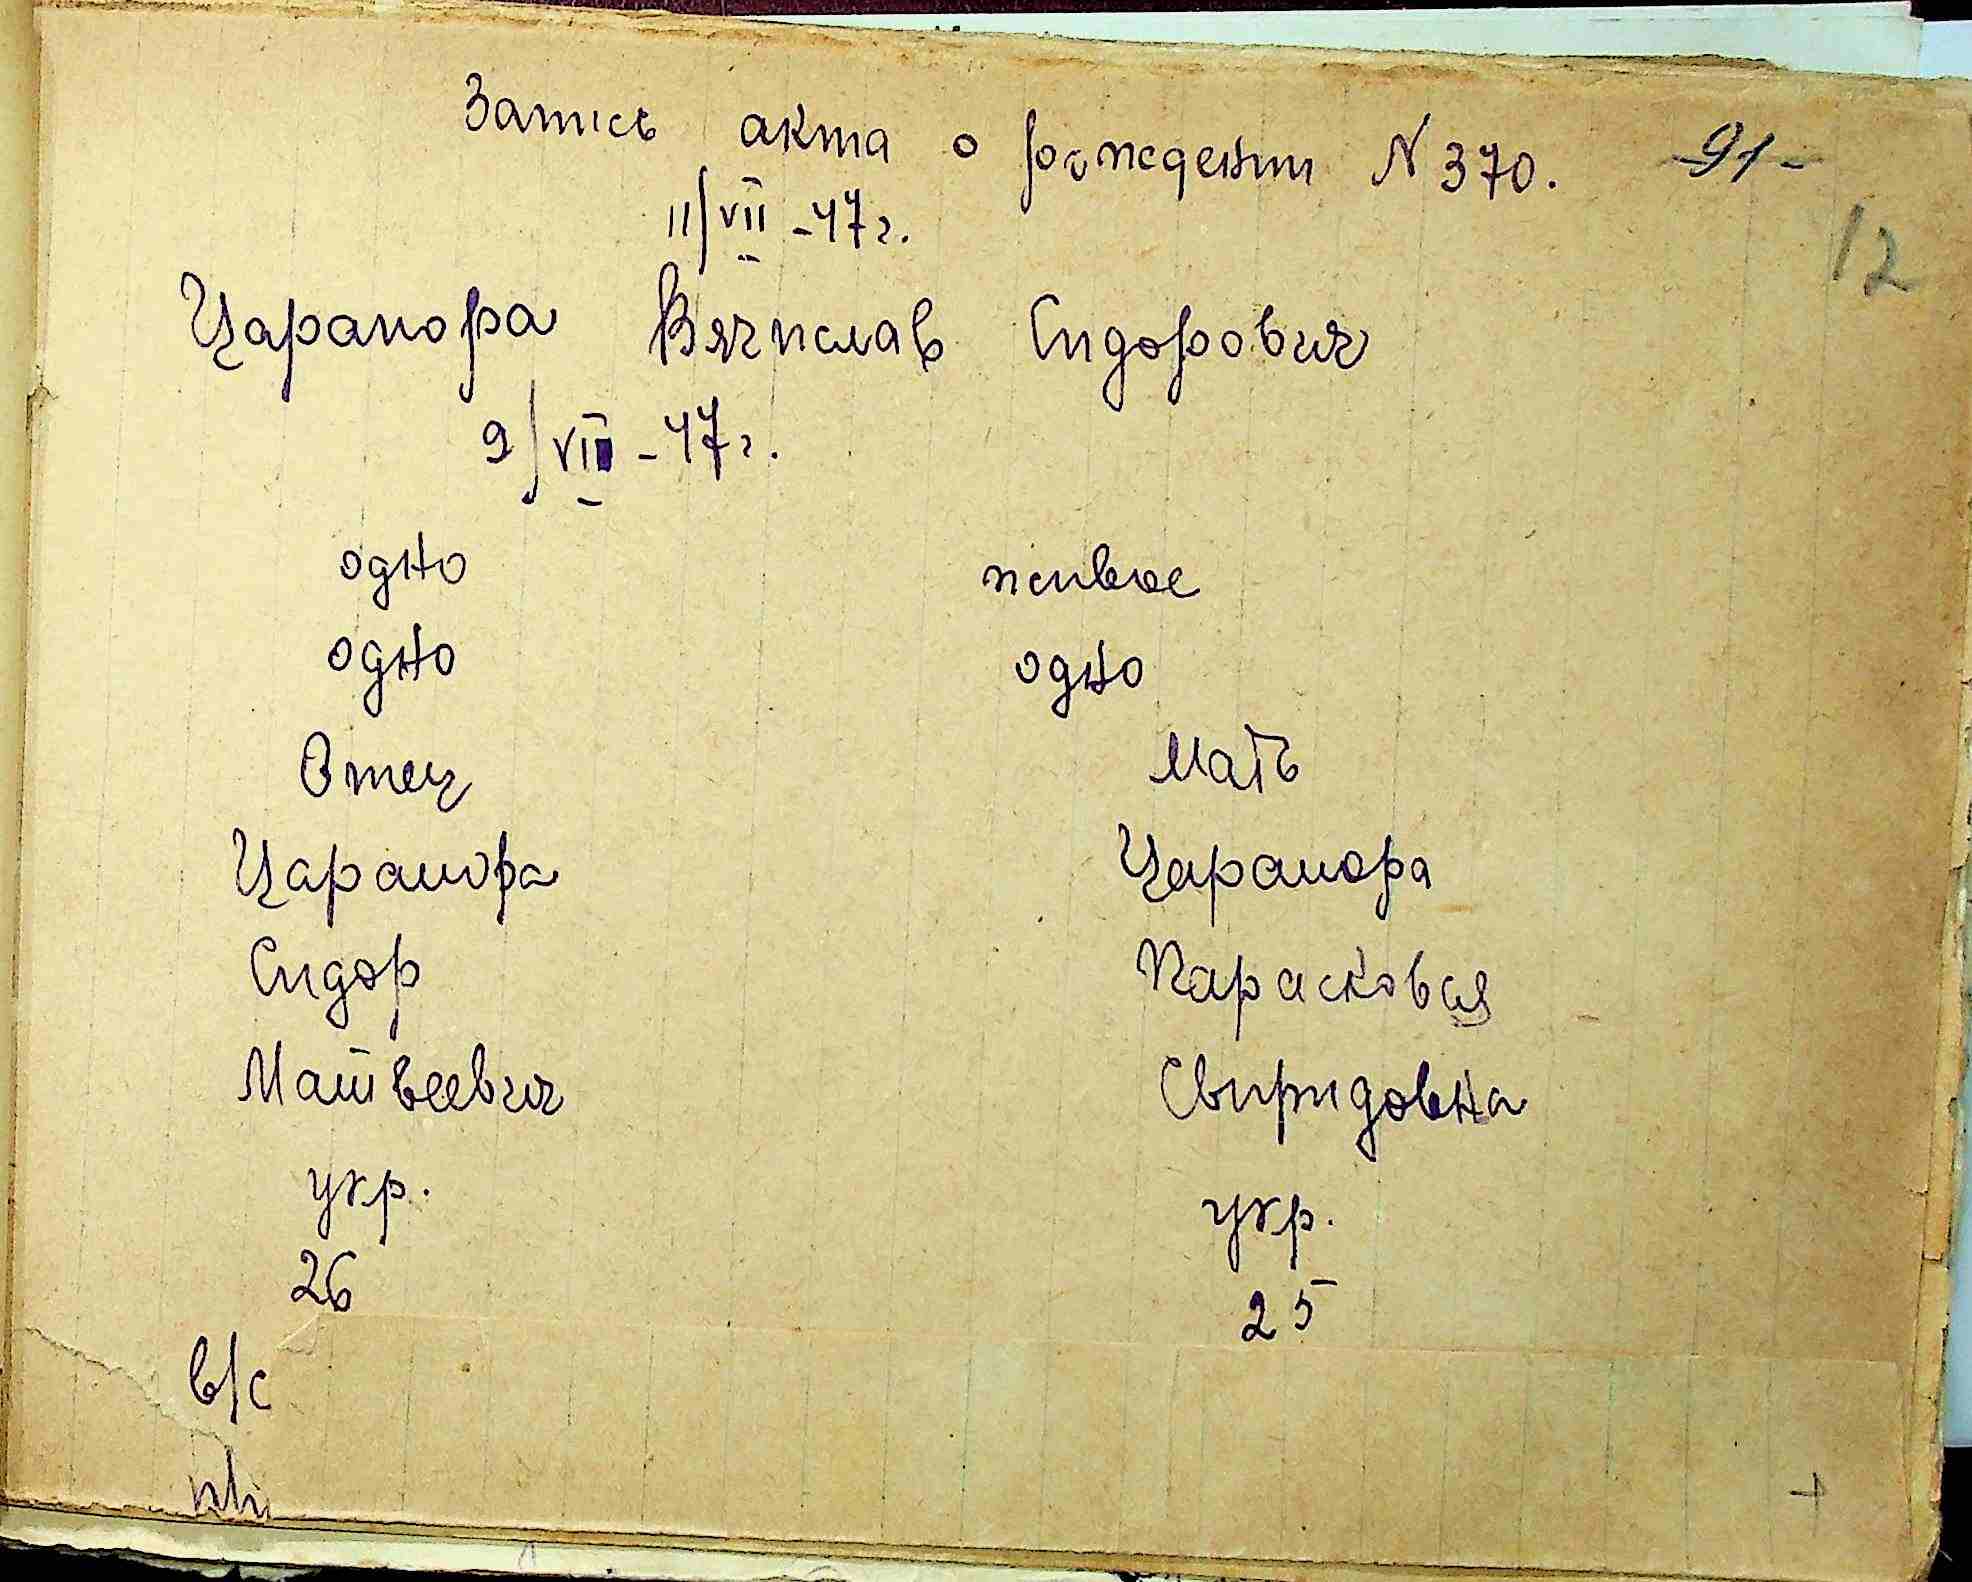 Запись акта о рождении N 370. -91-
12
11/VII -47 г.
Царапора Вячислав Сидорович
9/VII -47 г.
одно живое
одно одно
Отец Мать
Царапора Царапора
Сидор Парасковья
Матвеевич Свиридовна
укр. укр.
26 25
в/с